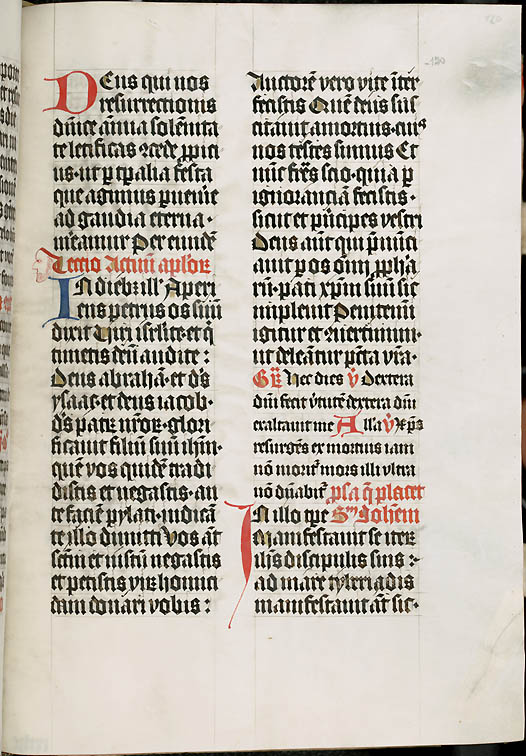 Deus qui nos
resurrectionis
dñice añua solẽnita
te letificas ꝯcede ꝓpici
us·ut ꝑ tp̃alia festa
que agimus ꝑuenire
ad gaudia eterna·
mereamur Per eundẽ
Lectio Actuũ apl'oꝝ
In dieb; ill' Aperi
ens petrus os suũ
dixit Viri isrl'ite·et q̃
timetis deũ audite :
Deus abrahã·et d's
ysaac·et deus iacob·
d's patꝝ nr̃oꝝ·glori
ficauit filiũ suũ ihm̃·
quẽ vos quidẽ tradi
distis et negastis·an
te faciẽ pylati·iudicã
te illo dimitti Vos aũt
sc̃m et iustũ negastis
et petistis viꝝ homici
dam donari vobis :
Auctorẽ vero vite ĩter
fecistis Quẽ deus sus
citauit a mortuis·cui9
nos testes sumus Et
nũc fr̃es scio·quia ꝑ
ignoranciam fecistis·
sicut et pñcipes vestri
Deus aũt qui p̃nunci
auit ꝑ os oĩm ꝓph'a
rũ·pati xp̃m suũ sic
impleuit Penitemi
igitur et ꝯuertimini·
ut deleãtur pctã vrã·
Gr̃ Hec dies ℣ Dextera
dñi fecit v̾tutẽ dextera dñi
exaltauit me All'a ℣ Xp̃s
resurgẽs ex mortuis iam
nõ morit' mors illi vltra
nõ dñabit' ꝓsa q̃ placet
In illo tp̃e Sm̃ Johem
Manifestauit se iteꝝ
ih̃s discipulis suis :
ad mare tyberiadis
manifestauit aũt sic·